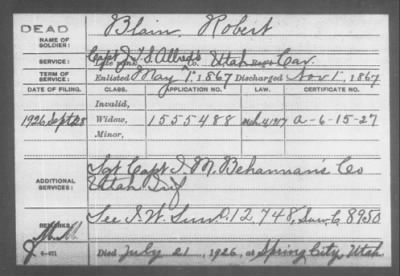 DEAD
NAME OF SOLDIER: Blain, Robert
SERVICE: Capt J. T. S. Allred's Utah Cav.
TERM OF SERVICE: Enlisted May 1, 1867 Discharged Nov 1, 1867
DATE OF FILING. CLASS. APPLICATION NO. LAW. CERTIFICATE NO.
Invalid,
1926 Sept 28 Widow, 1555488 Mch 4, 1917 a-6-15-27
Minor,
ADDITIONAL SERVICES: Sgt Capt I. M. Behannan's Co
Utah Inf
REMARKS: See I. W. Surv O. 12,748, Surv C. 8950
Died July 21, 1926, at Spring City, Utah